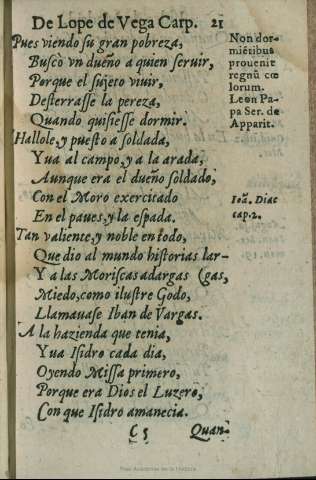 De Lope de Vega Carp. 21
Pues viendo ſu gran pobreza,
Buſcò vn dueño a quien ſeruir,
Porque el ſujeto viuir,
Deſterraſſe la pereza,
Quando quiſieſſe dormir.
Hallole, y pueſto a ſoldada,
Yua al campo, y a la arada,
Aunque era el dueño ſoldado,
Con el Moro exercitado
En el paues, y la eſpada.
Tan valiente, y noble en todo,
Que dio al mundo hiſtorias lar-
Y a las Moriſcas adargas (gas,
Miedo, como iluſtre Godo,
Llamauaſe Iban de Vargas.
A la hazienda que tenia,
Yua Iſidro cada dia,
Oyendo Miſſa primero,
Porque era Dios el Luzero,
Con que Iſidro amanecia.
C 5 Quan-
Non dor-
miētibus
prouenit
regnũ cœ
lorum.
Leon Pa-
pa Ser. de
Apparit.
Ioã. Diac
cap. 2.
Real Academia de la Historia